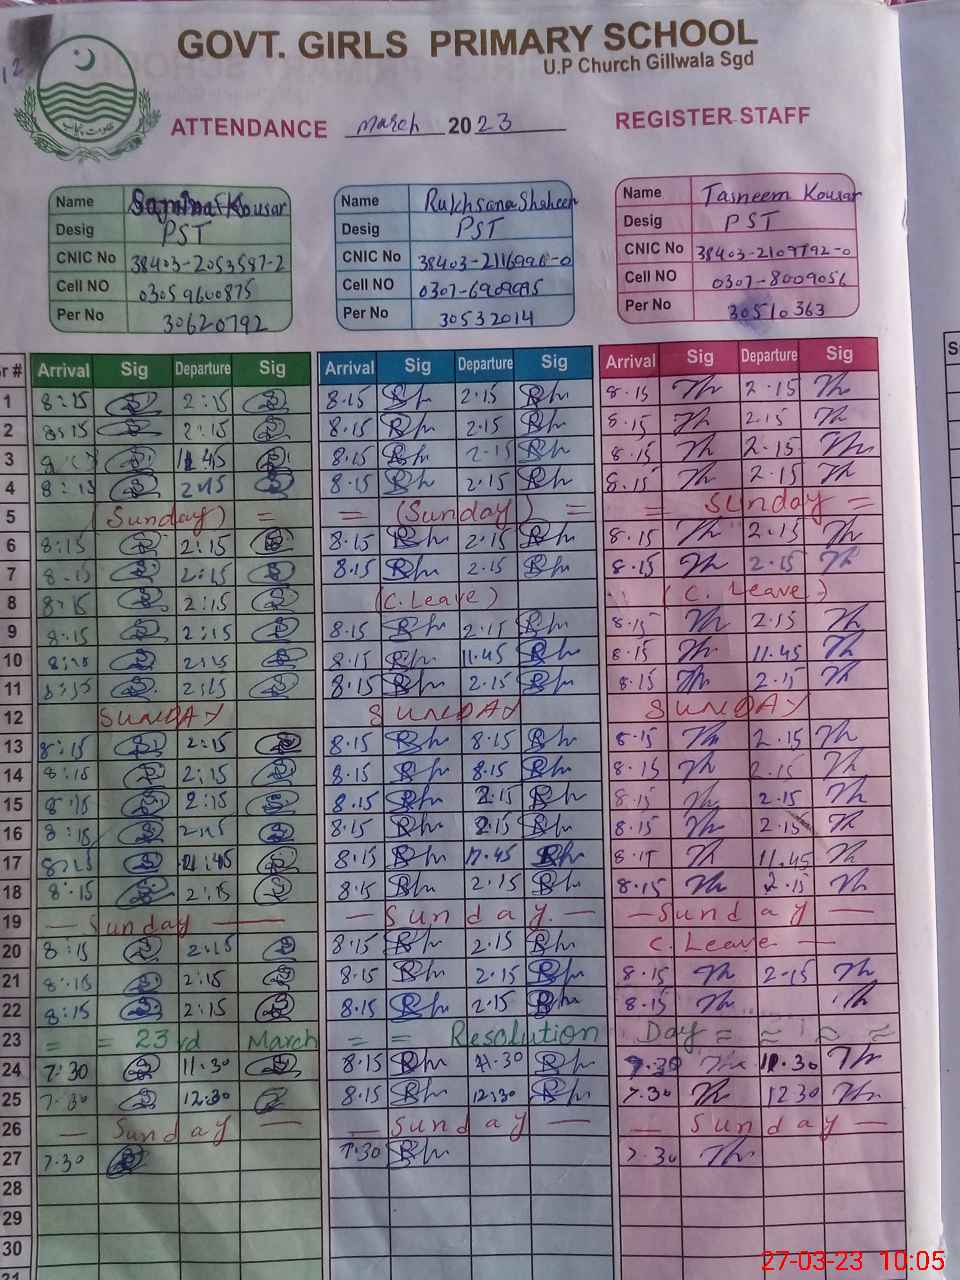 GOVT. GIRLS PRIMARY SCHOOL
U.P Church Gillwala Sgd
ATTENDANCE March 2023 REGISTER STAFF
Name Samina Kousar Name Rukhsana Shaheen Name Tasneem Kousar
Desig PST Desig PST Desig PST
CNIC No 38403-2053587-2 CNIC No CNIC No 38403-2109792-0
Cell NO 03059600875 Cell NO Cell NO 0307-8009056
Per No 30620792 Per No 30532014 Per No 30510363
r # Arrival Sig Departure Sig Arrival Sig Departure Sig Arrival Sig Departure Sig
1 8:15 2:15 8.15 2.15 8.15 2.15
2 8:15 2:15 8.15 2.15 8.15 2.15
3 11.45 8.15 2.15 8.15 2.15
4 8:15 2:15 8.15 2.15 8.15 2.15
5 (Sunday) = = (Sunday) = = Sunday =
6 8:15 2:15 8.15 2.15 8.15 2.15
7 8:15 2:15 8.15 2.15 8.15 2.15
8 8:15 2:15 (C.Leave) (C. Leave)
9 8:15 2:15 8.15 2.15 8.15 2.15
10 8:15 2:15 8.15 11.45 8.15 11.45
11 8:15 2:15 8.15 2.15 8.15 2.15
12 SUNDAY SUNDAY SUNDAY
13 8:15 2:15 8.15 8.15 8.15 2.15
14 8:15 2:15 8.15 8.15 8.15 2.15
15 8:15 2:15 8.15 2.15 8.15 2.15
16 8:15 2:15 8.15 2.15 8.15 2.15
17 8:15 11:45 8.15 11.45 8.15 11.45
18 8:15 2:15 8.15 2.15 8.15 2.15
19 — Sunday — — Sunday. — — Sunday —
20 8:15 2:15 8.15 2.15 C. Leave —
21 8:15 2:15 8.15 2.15 8.15 2.15
22 8:15 2:15 8.15 2.15 8.15
23 = = 23rd March = = Resolution Day = = = =
24 7:30 11.30 8.15 11.30 7.30 11.30
25 7.30 12:30 8.15 12:30 7.30 12 30
26 — Sunday — — Sunday — — Sunday —
27 7.30 7.30 7.30
28
29
30
27-03-23 10:05